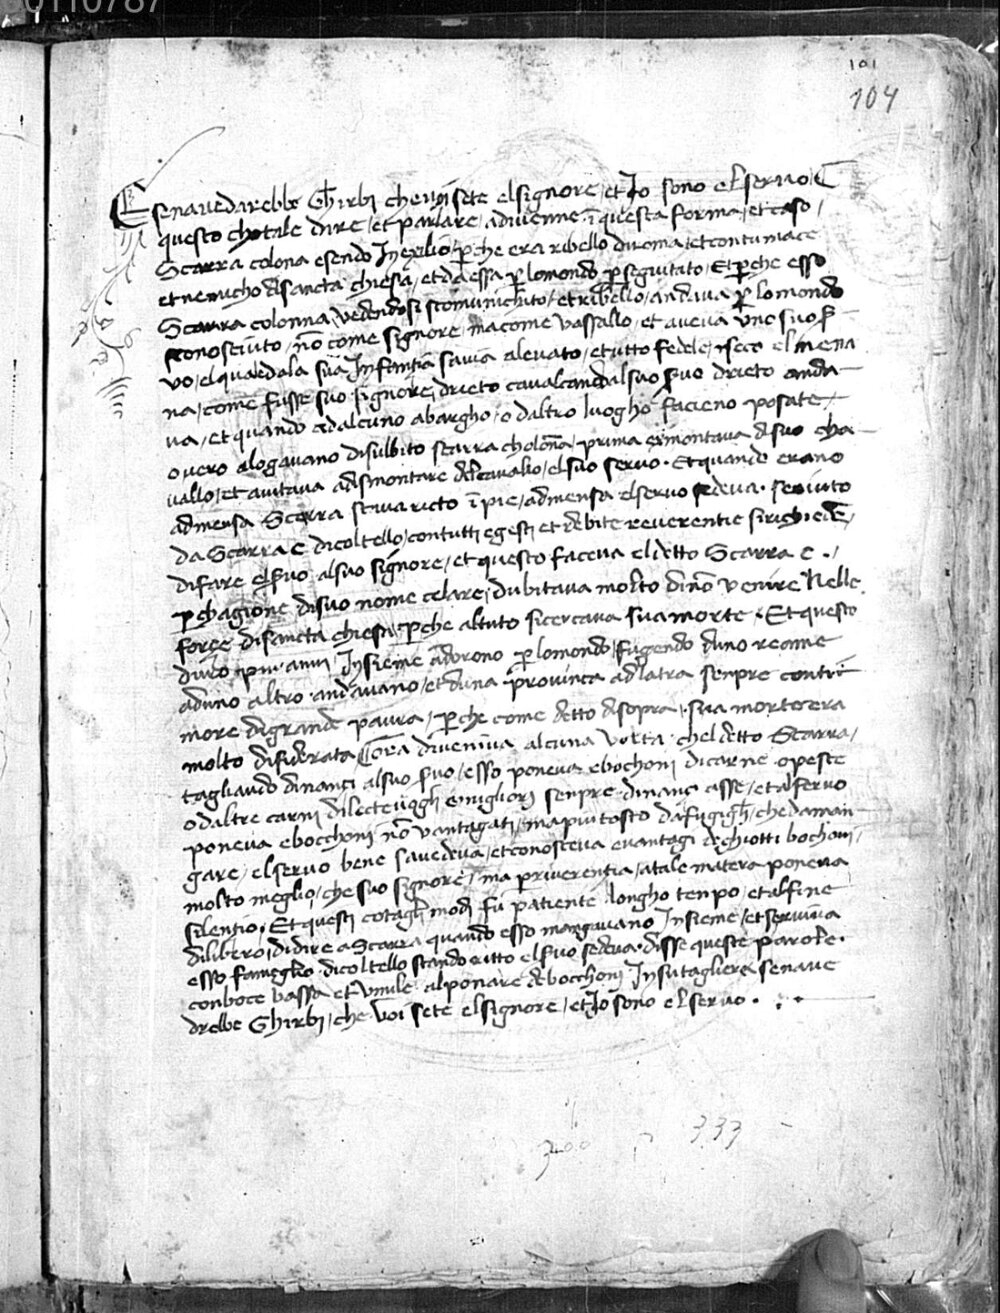 101
104
E senavedarebbe Ghirbi che voi sete el signore / et Io sono el servo / C
questo chotale dire / et parlare / adivenne ī questa forma / et caso /
Scarra colona esendo In exilio / p che era ribello diroma / et contumace
et nemicho di sancta chiesa / et da essa p lomondo pseguitato / Et p che esso
Scarra colonna / vedendosi scomunichato / et ribello / andava p lomondo
sconosciuto / nō come signore / ma come vassallo / et aveva uno suo s
vo / el quale dala sua Infantia savia alevato / et tutto fedele / seco el mena
na / come fusse suo signore / drieto cavalcando al suo servo drieto anda
va / et quando ad alcuno abargho / o daltro luogho facieno posate /
overo alogavano disubito scarra cholōna / prima ismontava di suo cha
vallo / et aiutava adismontare del cavallo / el suo servo . Et quando erano
admensa Scarra stava ricto ī pie / admensa el servo sedeva . servito
da Scarra e di coltello / con tutti e gesti et debite reverentie si richiede /
di fare el servo al suo signore / et questo faceva el detto Scarra e . /
p chagione di suo nome celare / dubitava molto di nō venire Nelle
forçe di sancta chiesa / p che altuto si cercava sua morte . Et questo
duro piu anni Insieme andorono p lomondo / fugendo duno reame
aduno altro . andavano / et duna provinca adlatra senpre con ti
more di grande paura / p che come detto di sopra / sua morte era
molto disiderata Cora diveniva alcuna volta . chel detto Scarra /
tagliando dinançi al suo servo / esso poneva e bochoni di carne . o pesce
o daltre carni dilecte e migliori senpre dinançi asse / et al servo
poneva e bocchoni nō vantagati / ma piu tosto da fugigli / che da man
gare / el servo bene savedeva / et conosceva e vantagi de ghiotti bochoni /
molto meglio / che suo signore / ma p riverentia / a tale matera poneva
silentio / Et questi cotagli modi fu patiente longho tenpo / et al fine
dilibero / di dire a Scarra quando esso mangavano Insieme / et serviva
esso famegllo . di coltello stando ritto el servo sedeva . disse queste parole .
con boce bassa et Vmile al ponare de bocchoni In su tagliere senave
drebbe Ghirbi / che voi sete el signore / et Io sono el servo .
300
333